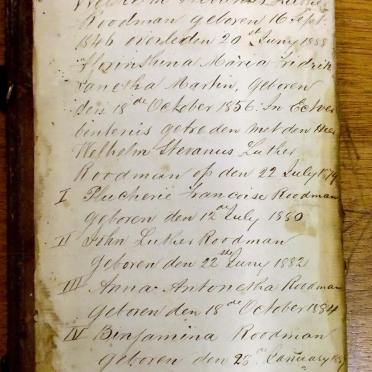 Roodman geboren 16 Sept.
1846 overleden 20st Juny 1888
Maria Fredrik
Martin, Geboren
den 18de October 1856. In Echver
bintenis getreden met den Heer
Welhelm Steranus Luther
Roodman op den 22 July 1879
I Plucherie Francoise Roodman
Geboren den 12de July 1880
II John Luther Roodman
Geboren den 22ste Juny 1882
III Anna Antonetha Roodman
Geboren den 18de October 1884
IV Benjamina Roodman
Geboren den 25ste January